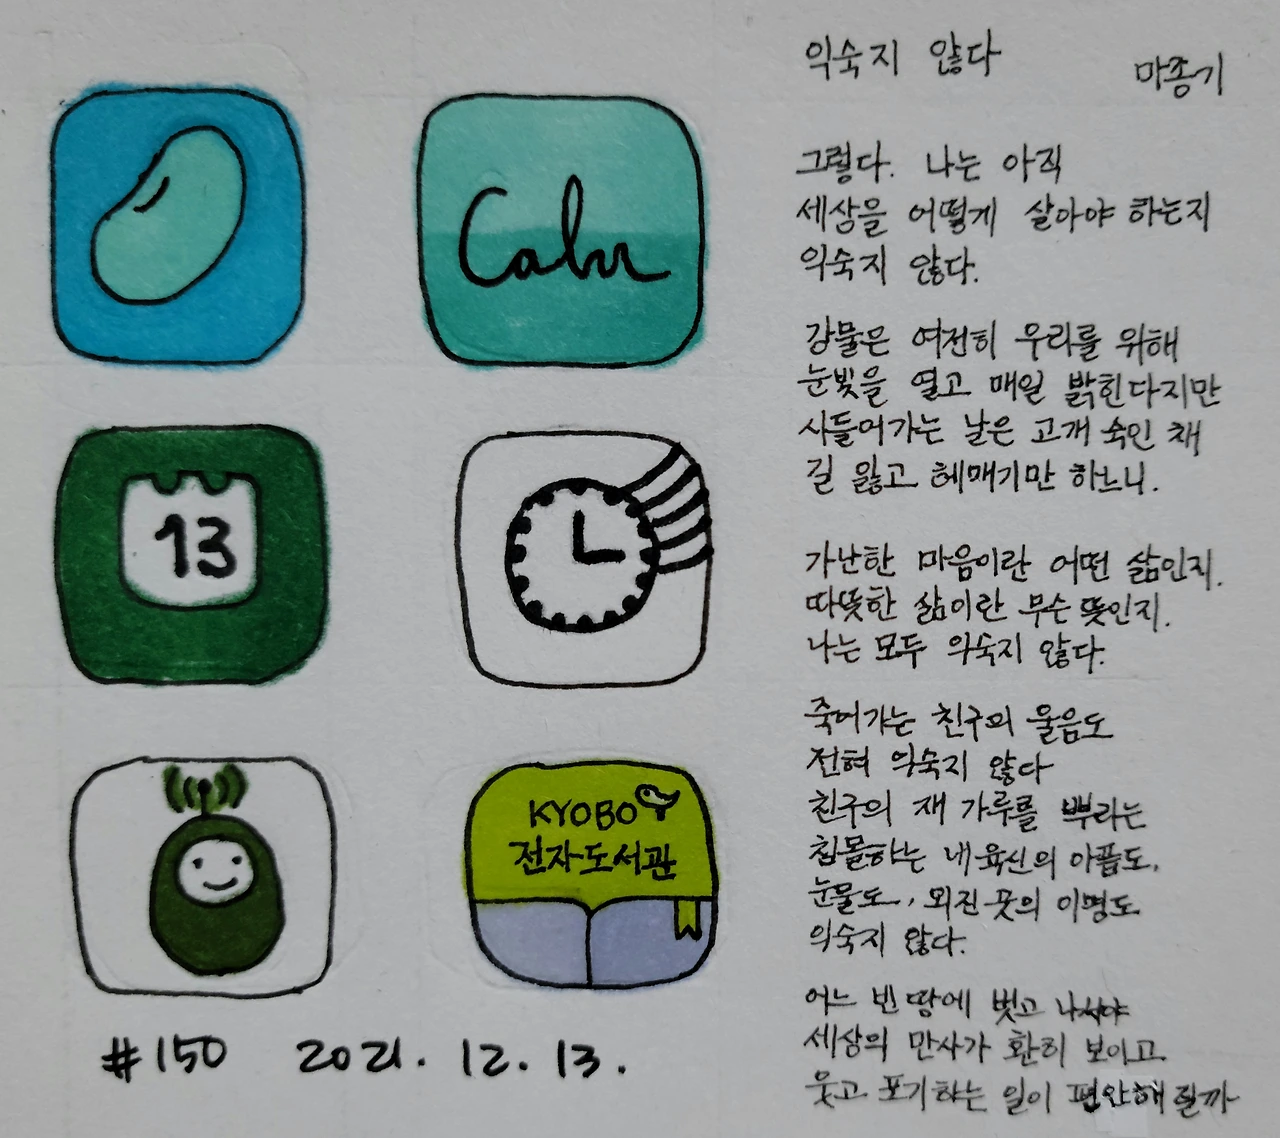 Calm
13
KYOBO
전자도서관
#150 2021. 12. 13.
익숙지 않다
마종기
그렇다. 나는 아직
세상을 어떻게 살아야 하는지
익숙지 않다.
강물은 여전히 우리를 위해
눈빛을 열고 매일 밝힌다지만
시들어가는 날은 고개 숙인 채
길 잃고 헤매기만 하느니.
가난한 마음이란 어떤 삶인지.
따뜻한 삶이란 무슨 뜻인지.
나는 모두 익숙지 않다.
죽어가는 친구의 울음도
전혀 익숙지 않다
친구의 재 가루를 뿌리는
침몰하는 내 육신의 아픔도,
눈물도, 외진 곳의 이명도
익숙지 않다.
어느 빈 땅에 벗고 나서야
세상의 만사가 환히 보이고
웃고 포기하는 일이 편안해 질까